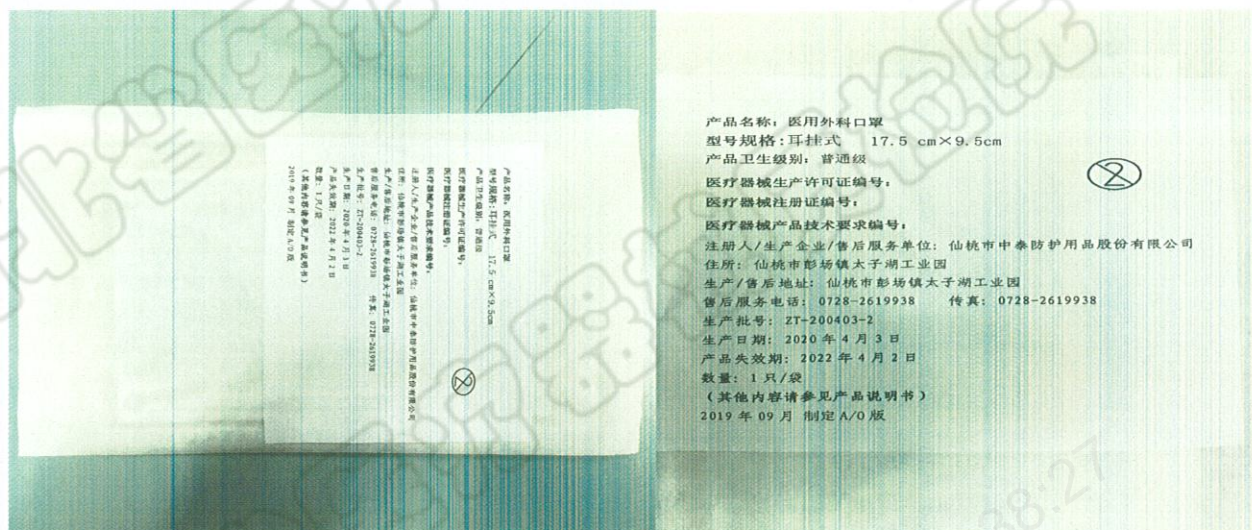 产品名称：医用外科口罩
型号规格：耳挂式 17.5 cm×9.5cm
产品卫生级别：普通级
医疗器械生产许可证编号：
医疗器械注册证编号：
医疗器械产品技术要求编号：
注册人/生产企业/售后服务单位：仙桃市中泰防护用品股份有限公司
住所：仙桃市彭场镇太子湖工业园
生产/售后地址：仙桃市彭场镇太子湖工业园
售后服务电话：0728-2619938 传真：0728-2619938
生产批号：ZT-200403-2
生产日期：2020年4月3日
产品失效期：2022年4月2日
数量：1只/袋
（其他内容请参见产品说明书）
2019年09月 制定A/0版
2
产品名称：医用外科口罩
型号规格：耳挂式 17.5 cm×9.5cm
产品卫生级别：普通级
2
医疗器械生产许可证编号：
医疗器械注册证编号：
医疗器械产品技术要求编号：
注册人/生产企业/售后服务单位：仙桃市中泰防护用品股份有限公司
住所：仙桃市彭场镇太子湖工业园
生产/售后地址：仙桃市彭场镇太子湖工业园
售后服务电话：0728-2619938 传真：0728-2619938
生产批号：ZT-200403-2
生产日期：2020年4月3日
产品失效期：2022年4月2日
数量：1只/袋
（其他内容请参见产品说明书）
2019年09月 制定A/0版
38:27